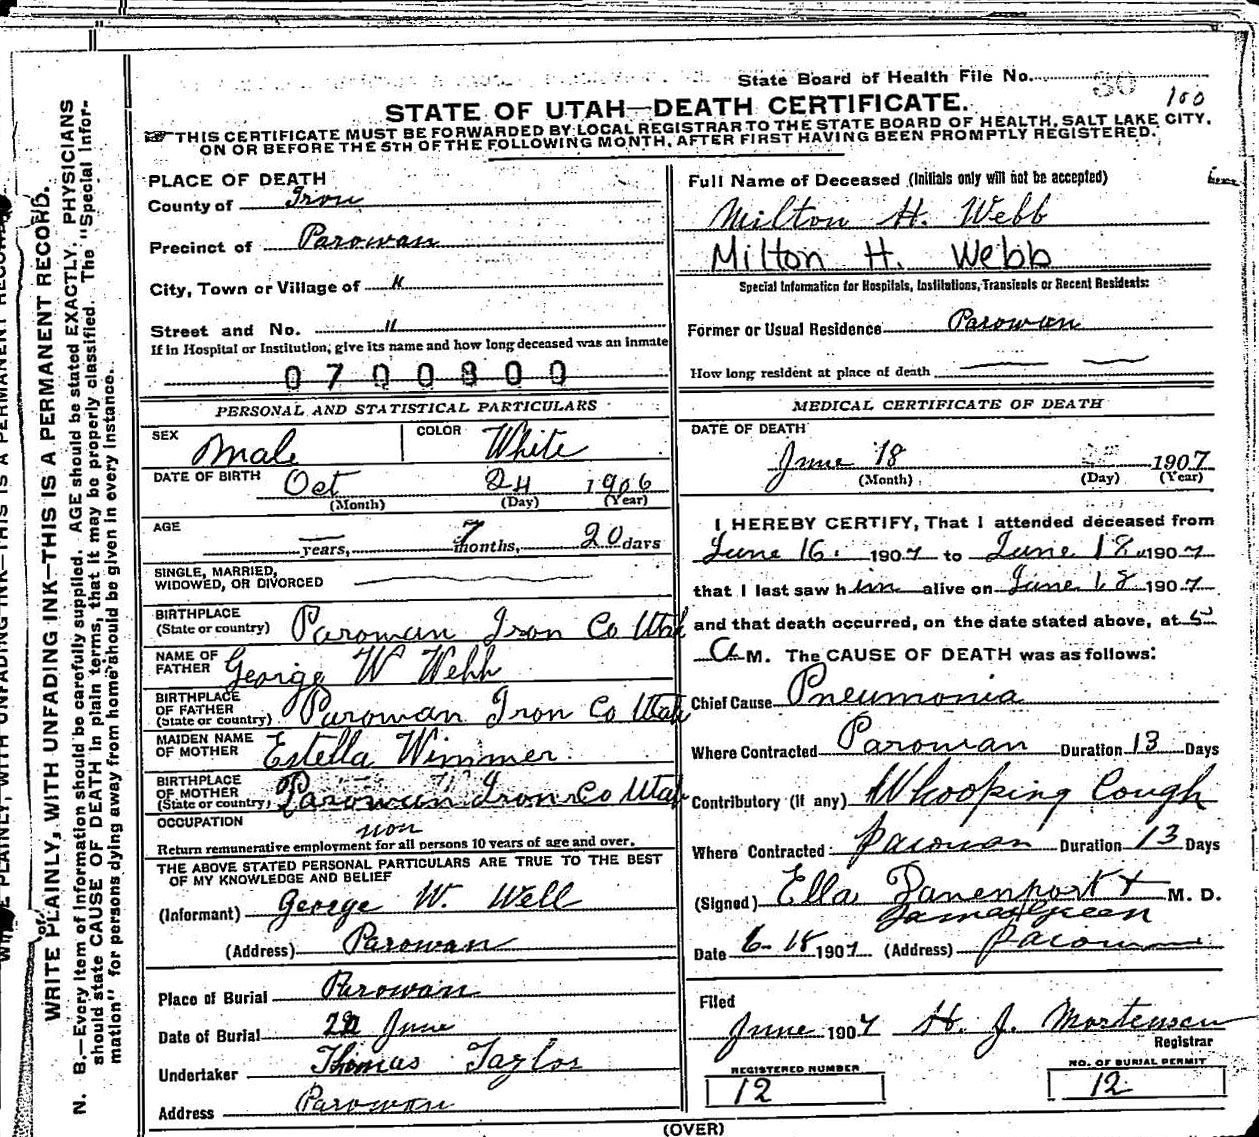 State Board of Health File No. 30
100
STATE OF UTAH—DEATH CERTIFICATE.
THIS CERTIFICATE MUST BE FORWARDED BY LOCAL REGISTRAR TO THE STATE BOARD OF HEALTH, SALT LAKE CITY,
ON OR BEFORE THE 5TH OF THE FOLLOWING MONTH, AFTER FIRST HAVING BEEN PROMPTLY REGISTERED.
WRITE PLAINLY, WITH UNFADING INK—THIS IS A PERMANENT RECORD.
N. B.—Every item of information should be carefully supplied. AGE should be stated EXACTLY. PHYSICIANS
should state CAUSE OF DEATH in plain terms, that it may be properly classified. The "Special Infor-
mation" for persons dying away from home should be given in every instance.
PLACE OF DEATH
County of Iron
Precinct of Parowan
City, Town or Village of "
Street and No. "
If in Hospital or Institution, give its name and how long deceased was an inmate
0700800
PERSONAL AND STATISTICAL PARTICULARS
SEX Male COLOR White
DATE OF BIRTH Oct 24 1906
(Month) (Day) (Year)
AGE — years, 7 months, 20 days
SINGLE, MARRIED,
WIDOWED, OR DIVORCED
BIRTHPLACE
(State or country) Parowan Iron Co Utah
NAME OF
FATHER George W Webb
BIRTHPLACE
OF FATHER
(State or country) Parowan Iron Co Utah
MAIDEN NAME
OF MOTHER Estella Wimmer
BIRTHPLACE
OF MOTHER
(State or country) Parowan Iron Co Utah
OCCUPATION non
Return remunerative employment for all persons 10 years of age and over.
THE ABOVE STATED PERSONAL PARTICULARS ARE TRUE TO THE BEST
OF MY KNOWLEDGE AND BELIEF
(Informant) George W. Webb
(Address) Parowan
Place of Burial Parowan
Date of Burial June
Undertaker Thomas Taylor
Address Parowan
Full Name of Deceased (Initials only will not be accepted)
Milton H. Webb
Milton H. Webb
Special Information for Hospitals, Institutions, Transients or Recent Residents:
Former or Usual Residence Parowan
How long resident at place of death — —
MEDICAL CERTIFICATE OF DEATH
DATE OF DEATH
June 18 1907
(Month) (Day) (Year)
I HEREBY CERTIFY, That I attended deceased from
June 16. 1907 to June 18 1907
that I last saw him alive on June 18 1907
and that death occurred, on the date stated above, at 5
A M. The CAUSE OF DEATH was as follows:
Chief Cause Pneumonia
Where Contracted Parowan Duration 13 Days
Contributory (if any) Whooping Cough
Where Contracted: Parowan Duration 13 Days
(Signed) Ella Davenport + M. D.
James Green
Date 6-18 1907 (Address) Parowan
Filed
June 1907 H. J. Mortensen
Registrar
REGISTERED NUMBER
12
NO. OF BURIAL PERMIT
12
(OVER)